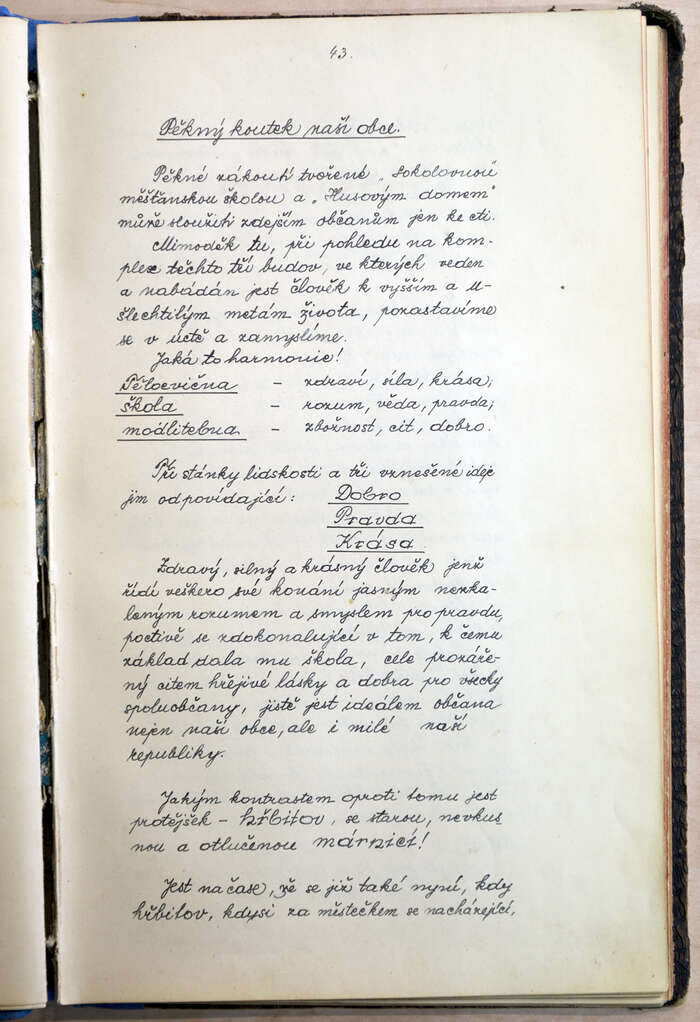 43.
Pěkný koutek naší obce.
Pěkné zákoutí tvořené „Sokolovnou
měšťanskou školou a „Husovým domem"
může sloužiti zdejším občanům jen ke cti.
Mimoděk tu, při pohledu na kom-
plex těchto tří budov, ve kterých veden
a nabádán jest člověk k vyšším a u-
šlechtilým metám života, pozastavíme
se v úctě a zamyslíme.
Jaká to harmonie!
Tělocvična – zdraví, síla, krása;
škola – rozum, věda, pravda;
modlitebna – zbožnost, cit, dobro.
Tři stánky lidskosti a tři vznešené ideje
jim odpovídající: Dobro
Pravda
Krása
Zdravý, silný a krásný člověk jenž
řídí veškero své konání jasným nezka-
leným rozumem a smyslem pro pravdu,
poctivě se zdokonalující v tom, k čemu
základ dala mu škola, cele prozáře-
ný citem hřejivé lásky a dobra pro všecky
spoluobčany, jistě jest ideálem občana
nejen naší obce, ale i milé naší
republiky.
Jakým kontrastem oproti tomu jest
protějšek – hřbitov, se starou, nevkus-
nou a otlučenou márnicí!
Jest na čase, že se již také nyní, kdy
hřbitov, kdysi za městečkem se nacházející,